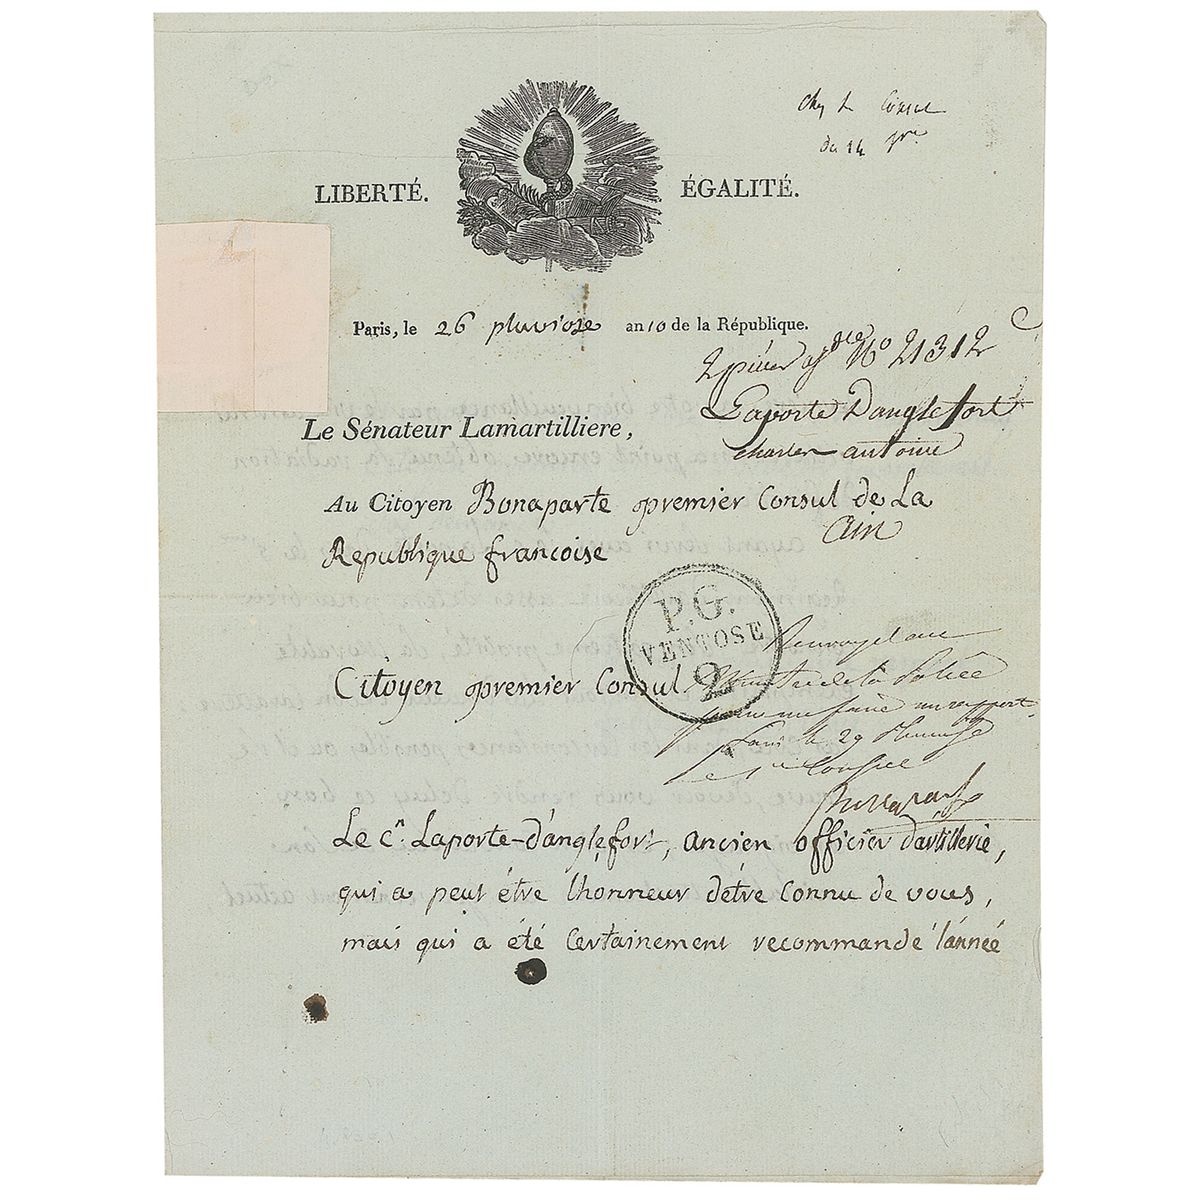 Chez le Consul
du 14
LIBERTÉ. ÉGALITÉ.
Paris, le 26 pluviose an 10 de la République.
2 pièces N° 21312
Laporte Danglefort
charles antoine
Le Sénateur Lamartilliere,
Au Citoyen Bonaparte premier Consul de La
Ain
Republique francoise
P.G.
VENTOSE
2
Citoyen premier Consul
Renvoyé au
Ministre de la Police
pour me faire un rapport
Paris le 29 Pluviose
le 1er Consul
Bonaparte
Le Cn. Laporte-d'anglefort, ancien officier d'artillerie,
qui a peut être lhonneur dêtre connu de vous,
mais qui a été certainement recommandé l'année